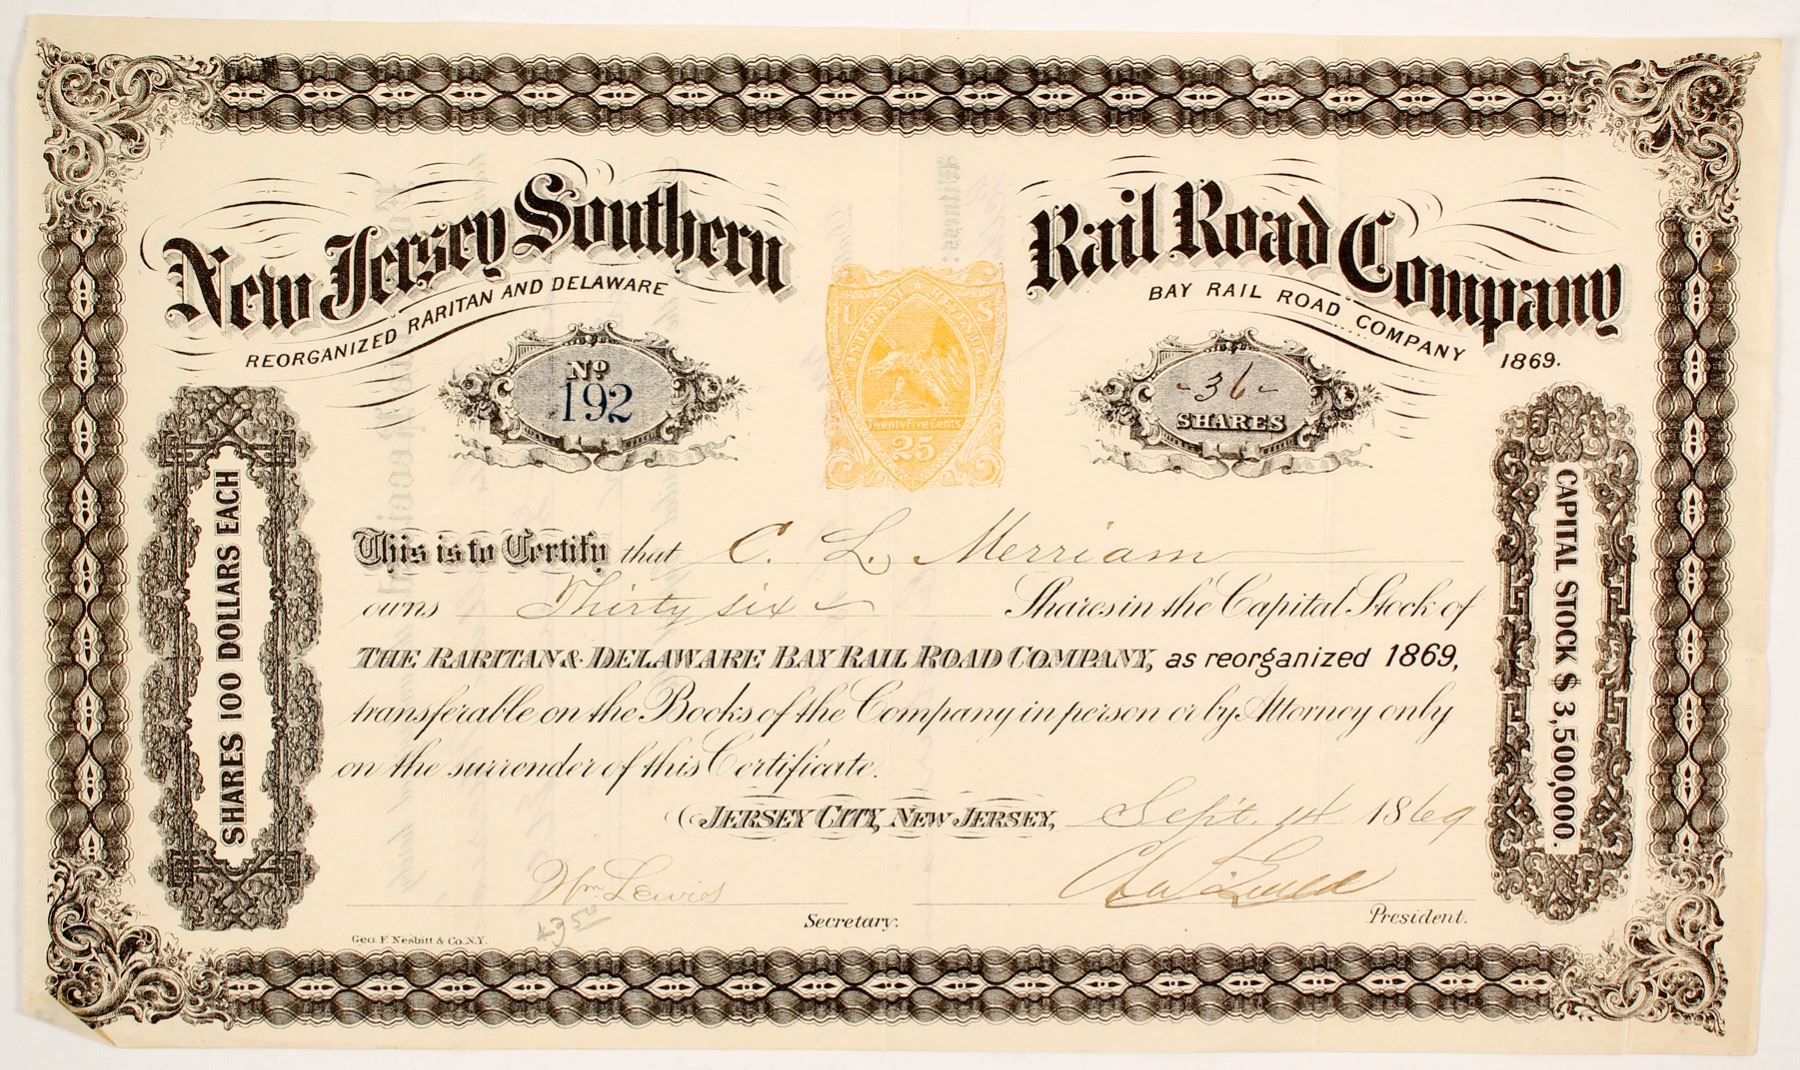 New Jersey Southern Rail Road Company
REORGANIZED RARITAN AND DELAWARE BAY RAIL ROAD COMPANY 1869.
No 192
U S
INTERNAL REVENUE
Twenty Five Cents
25
36
SHARES
SHARES 100 DOLLARS EACH
CAPITAL STOCK $ 3,500,000.
This is to Certify that C. L. Merriam
owns Thirty six Shares in the Capital Stock of
THE RARITAN & DELAWARE BAY RAIL ROAD COMPANY, as reorganized 1869,
transferable on the Books of the Company in person or by Attorney only
on the surrender of this Certificate.
JERSEY CITY, NEW JERSEY, Sept. 14 1869
Wm Lewis
Secretary.
President.
Geo. F. Nesbitt & Co. N.Y.